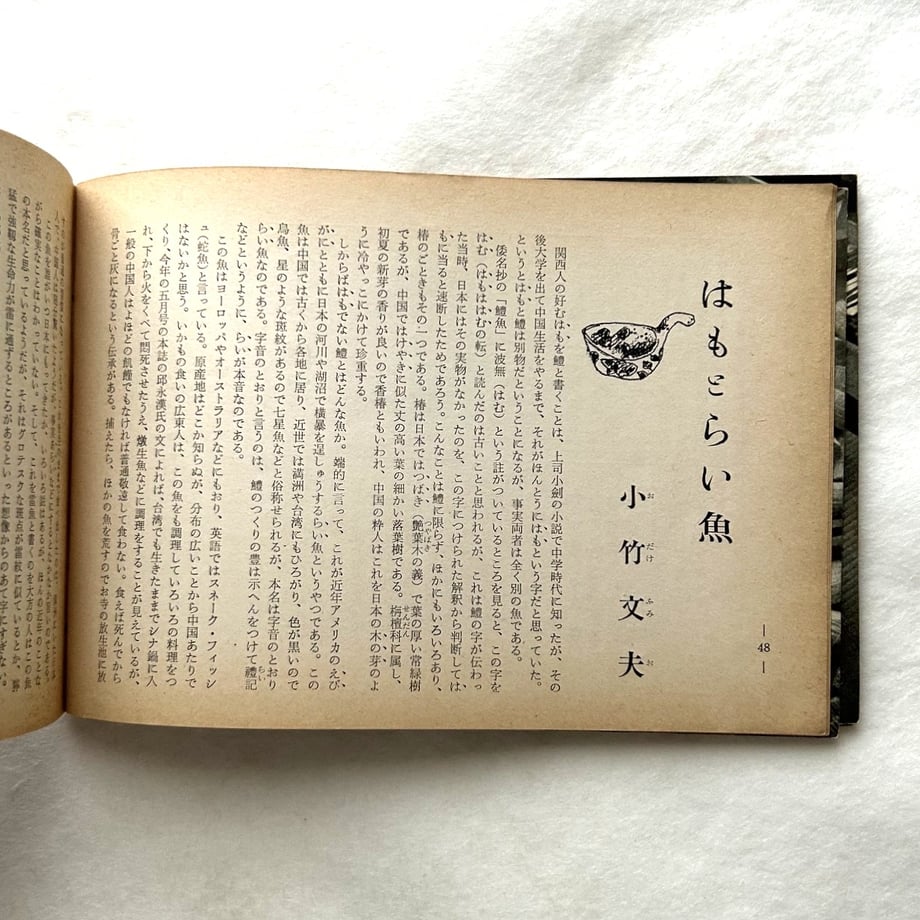 はもとらい魚
小竹文夫
おだけふみお
— 48 —
関西人の好むはもを鱧と書くことは、上司小劍の小説で中学時代に知ったが、その
後大学を出て中国生活をやるまで、それがほんとうにはもという字だと思っていた。
というとはもと鱧は別物だということになるが、事実両者は全く別の魚である。
倭名抄の「鱧魚」に波無（はむ）という註がついているところを見ると、この字を
はむ（はもははむの転）と読んだのは古いことと思われるが、これは鱧の字が伝わっ
た当時、日本にはその実物がなかったのを、この字につけられた解釈から判断しては
もに当ると速断したためであろう。こんなことは鱧に限らず、ほかにもいろいろあり、
椿のごときもその一つである。椿は日本ではつばき（艶葉木の義）で葉の厚い常緑樹
つやばき
であるが、中国ではけやきに似た丈の高い葉の細かい落葉樹である。栴檀科に属し、
せんだん
初夏の新芽の香りが良いので香椿ともいわれ、中国の粋人はこれを日本の木の芽のよ
うに冷やっこにかけて珍重する。
しからばはもでない鱧とはどんな魚か。端的に言って、これが近年アメリカのえび
がにとともに日本の河川や湖沼で横暴を逞しゅうするらい魚というやつである。この
魚は中国では古くから各地に居り、近世では満洲や台湾にもひろがり、色が黒いので
烏魚、星のような斑紋があるので七星魚などと俗称せられるが、本名は字音のとおり
らい魚なのである。字音のとおりと言うのは、鱧のつくりの豊は示へんをつけて禮記
らい
などというように、らいが本音なのである。
この魚はヨーロッパやオーストラリアなどにもおり、英語ではスネーク・フィッシ
ュ（蛇魚）と言っている。原産地はどこか知らぬが、分布の広いことから中国あたりで
はないかと思う。いかもの食いの広東人は、この魚をも調理していろいろの料理をつ
くり、今年の五月号の本誌の邱永漢氏の文によれば、台湾でも生きたままでシナ鍋に入
れ、下から火をくべて悶死させたうえ、燉生魚などに調理をすることが見えているが、
一般の中国人はよほどの飢饉でもなければ普通敬遠して食わない。食えば死んでから
骨ごと灰になるという伝承がある。捕えたら、ほかの魚を荒すのでお寺の放生池に放
この魚が誰がいつ日本にもってきたか、いろいろ説はあるが、ほんの近年のことな
がら確実なことはわかっていない。そして、これを雷魚と書くので大方の人はこの魚
の本名だと思っているようだが、それはグロテスクな斑点が雷紋に似ているとか、獰
猛で強靱な生命力が雷に通ずるところがあるといった想像からのあて字にすぎない。